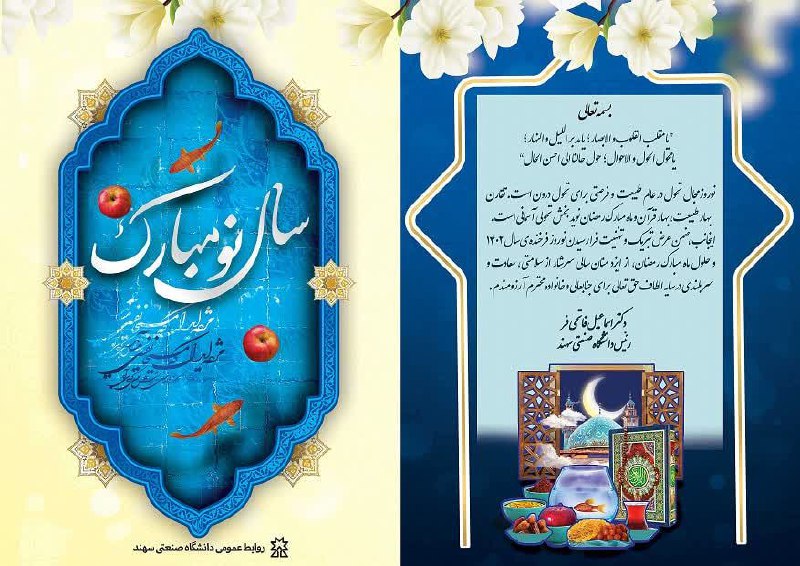 سال نو مبارک
روابط عمومی دانشگاه صنعتی سهند
بسمه تعالی
"یا مقلب القلوب و الابصار؛ یا مدبر اللیل و النهار؛
یا محول الحول و الاحوال؛ حول حالنا الی احسن الحال"
نوروز مجال تحول در عالم طبیعت و فرصتی برای تحول درون است. تقارن
بهار طبیعت، بهار قرآن و ماه مبارک رمضان نوید بخش تحولی آسمانی است.
اینجانب، ضمن عرض تبریک و تهنیت فرا رسیدن نوروز فرخنده‌ی سال ۱۴۰۲
و حلول ماه مبارک رمضان، از ایزد منان سالی سرشار از سلامتی، سعادت و
سربلندی در سایه الطاف حق تعالی برای جنابعالی و خانواده محترم آرزومندم.
دکتر اسماعیل فاتحی فر
رئیس دانشگاه صنعتی سهند